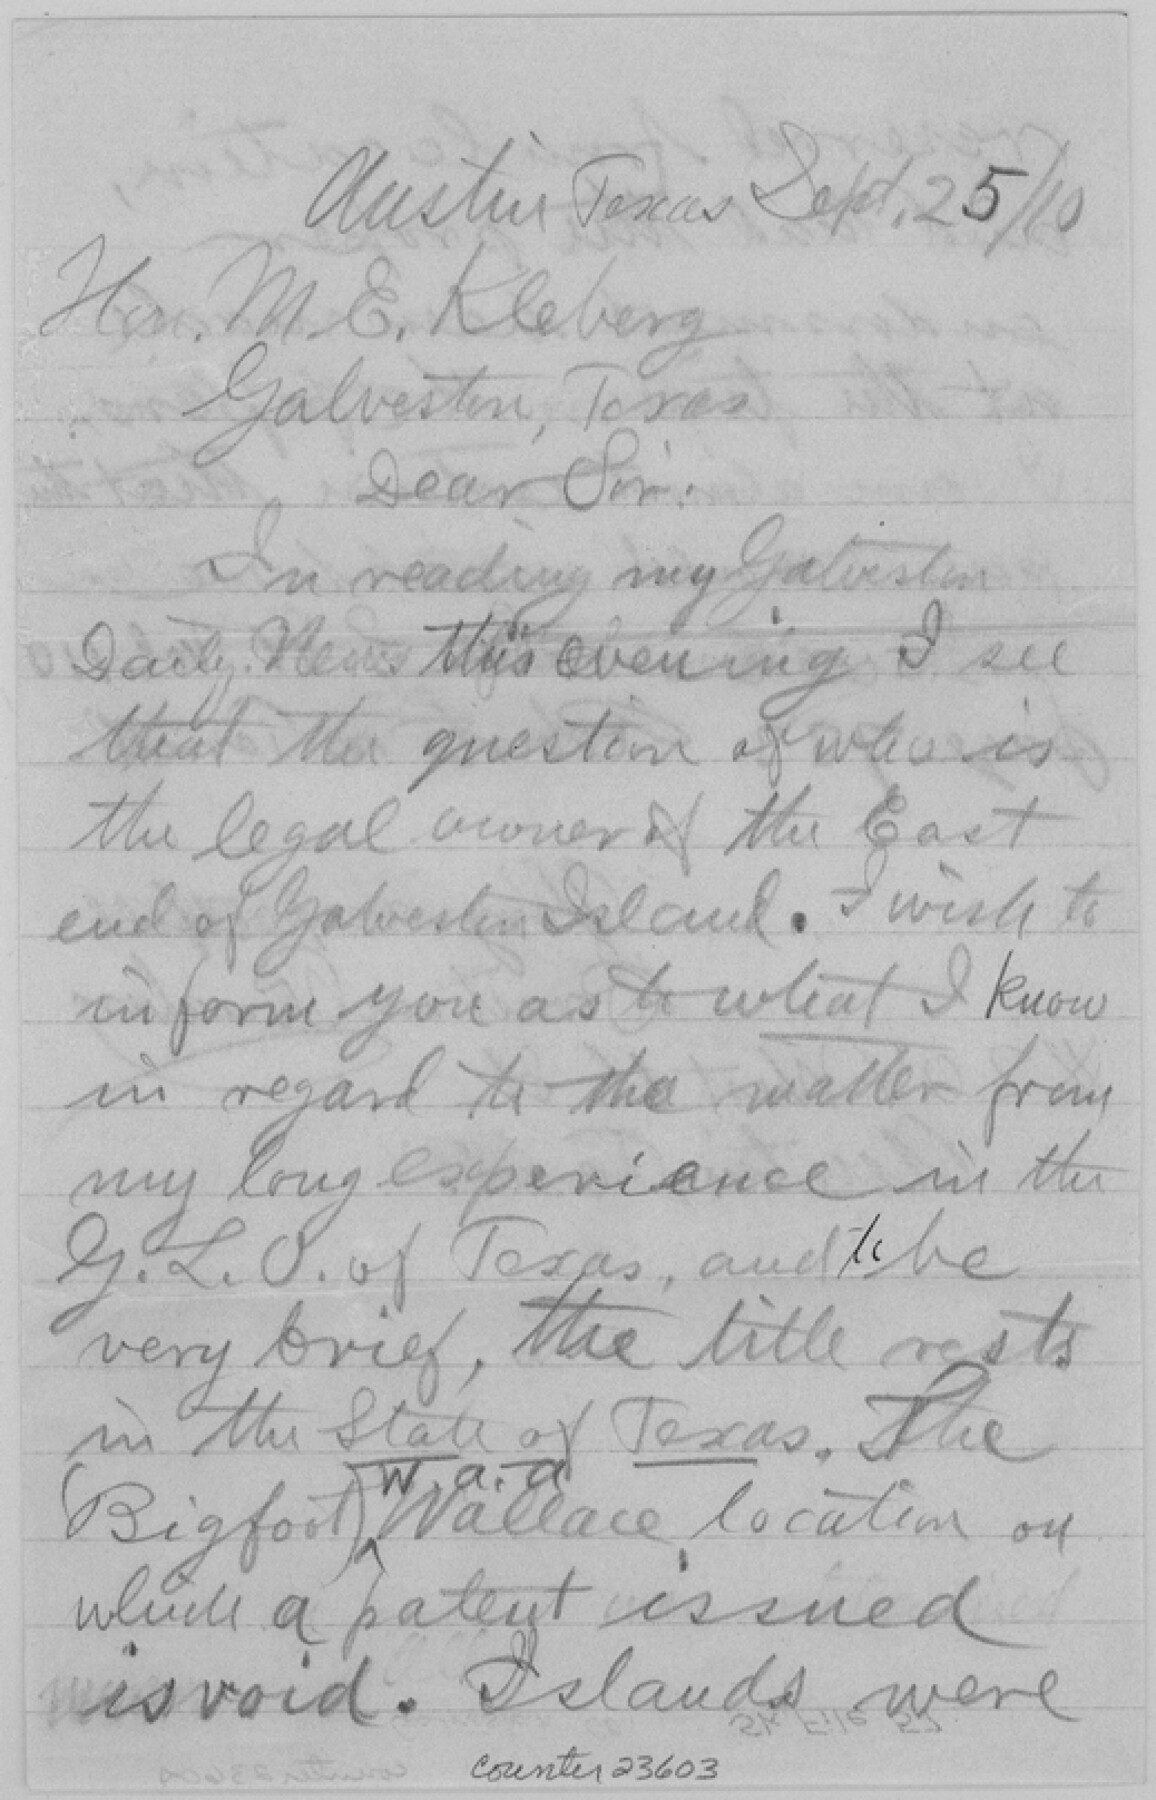 Austin Texas Sept. 25/10
Hon. M. E. Kleberg
Galveston, Texas
Dear Sir:
In reading my Galveston
Daily News this evening I see
that the question of who is
the legal owner of the East
end of Galveston Island. I wish to
inform you as to what I know
in regard to the matter from
my long experience in the
G. L. O. of Texas, and to be
very brief, the title rests
in the State of Texas. The
W. a. a
(Bigfoot) Wallace location on
which a patent issued
is void. Islands were
counter 23603